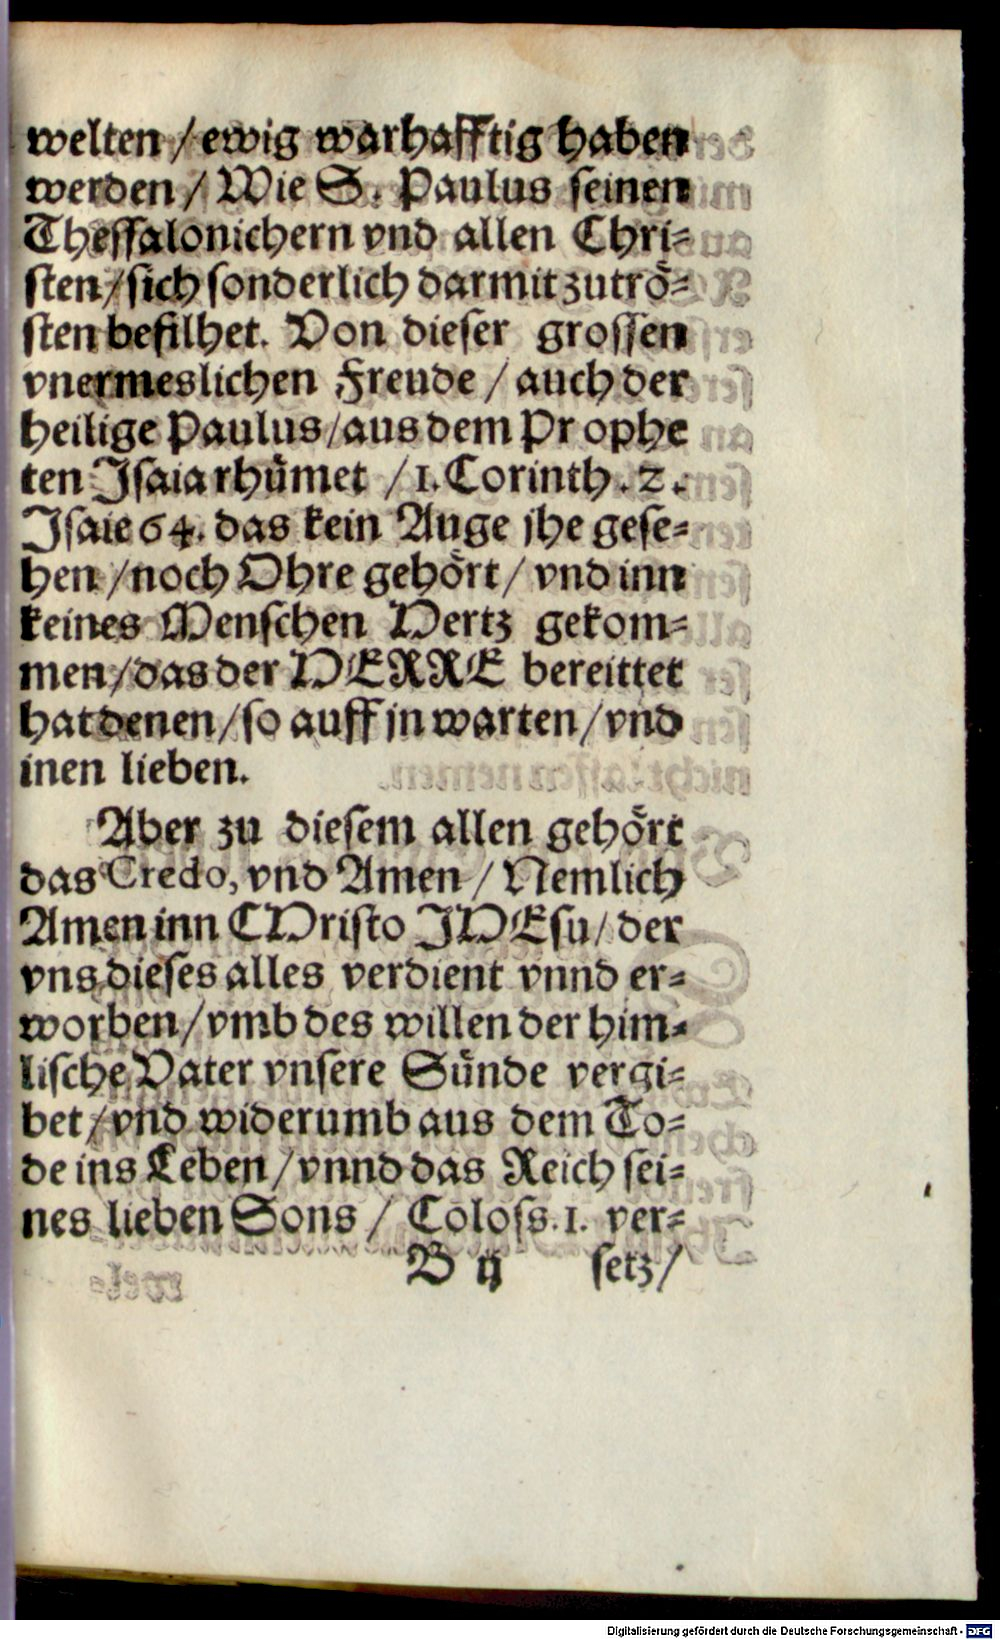 welten / ewig warhafftig haben
werden / Wie S. Paulus seinen
Thessalonichern vnd allen Chri-
sten / sich sonderlich darmit zutrö-
sten befilhet. Von dieser grossen
vnermeslichen Freude / auch der
heilige Paulus / aus dem Prophe
ten Isaia rhümet / 1. Corinth. 2.
Isaie 64. das kein Auge jhe gese-
hen / noch Ohre gehört / vnd inn
keines Menschen Hertz gekom-
men / das der HERRE bereittet
hat denen / so auff jn warten / vnd
inen lieben.
Aber zu diesem allen gehört
das Credo, vnd Amen / Nemlich
Amen inn CHristo JHEsu / der
vns dieses alles verdient vnnd er-
worben / vmb des willen der him-
lische Vater vnsere Sünde vergi-
bet / vnd widerumb aus dem To-
de ins Leben / vnnd das Reich sei-
nes lieben Sons / Coloss. 1. ver-
B ij setz /
Digitalisierung gefördert durch die Deutsche Forschungsgemeinschaft - DFG